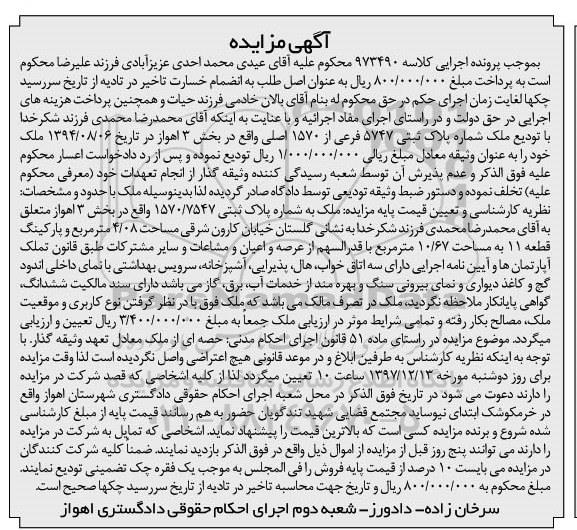 آگهی مزایده
بموجب پرونده اجرایی کلاسه ۹۷۳۴۹۰ محکوم علیه آقای عیدی محمد احدی عزیزآبادی فرزند علیرضا محکوم
است به پرداخت مبلغ ۸۰۰/۰۰۰/۰۰۰ ریال به عنوان اصل طلب به انضمام خسارت تاخیر در تادیه از تاریخ سررسید
چکها لغایت زمان اجرای حکم در حق محکوم له بنام آقای یالان خادمی فرزند حیات و همچنین پرداخت هزینه های
اجرایی در حق دولت و در راستای اجرای مفاد اجرائیه و با عنایت به اینکه آقای محمدرضا محمدی فرزند شکرخدا
با تودیع ملک شماره پلاک ثبتی ۵۷۴۷ فرعی از ۱۵۷۰ اصلی واقع در بخش ۳ اهواز در تاریخ ۱۳۹۴/۰۸/۰۶ ملک
خود را به عنوان وثیقه معادل مبلغ ریالی ۱/۰۰۰/۰۰۰/۰۰۰ ریال تودیع نموده و پس از رد دادخواست اعسار محکوم
علیه فوق الذکر و عدم پذیرش آن توسط شعبه رسیدگی کننده وثیقه گذار از انجام تعهدات خود (معرفی محکوم
علیه) تخلف نموده و دستور ضبط وثیقه تودیعی توسط دادگاه صادر گردیده لذا بدینوسیله ملک با حدود و مشخصات:
نظریه کارشناسی و تعیین قیمت پایه مزایده: ملک به شماره پلاک ثبتی ۱۵۷۰/۷۵۴۷ واقع در بخش ۳ اهواز متعلق
به آقای محمدرضا محمدی فرزند شکرخدا به نشانی گلستان خیابان کارون شرقی مساحت ۴/۰۸ مترمربع و پارکینگ
قطعه ۱۱ به مساحت ۱۰/۶۷ مترمربع با قدرالسهم از عرصه و اعیان و مشاعات و سایر مشترکات طبق قانون تملک
آپارتمان ها و آیین نامه اجرایی دارای سه اتاق خواب، هال، پذیرایی، آشپزخانه، سرویس بهداشتی با نمای داخلی اندود
گچ و کاغذ دیواری و نمای بیرونی سنگ و بهره مند از خدمات آب، برق، گاز می باشد دارای سند مالکیت ششدانگ،
گواهی پایانکار ملاحظه نگردید، ملک در تصرف مالک می باشد که ملک فوق با در نظر گرفتن نوع کاربری و موقعیت
ملک، مصالح بکار رفته و تمامی شرایط موثر در ارزیابی ملک جمعاً به مبلغ ۳/۴۰۰/۰۰۰/۰۰۰ ریال تعیین و ارزیابی
میگردد. موضوع مزایده در راستای ماده ۵۱ قانون اجرای احکام مدنی، حصه ای از ملک معادل تعهد وثیقه گذار. با
توجه به اینکه نظریه کارشناس به طرفین ابلاغ و در موعد قانونی هیچ اعتراضی واصل نگردیده است لذا وقت مزایده
برای روز دوشنبه مورخه ۱۳۹۷/۱۲/۱۳ ساعت ۱۰ تعیین میگردد لذا از کلیه اشخاصی که قصد شرکت در مزایده
را دارند دعوت می شود در تاریخ فوق الذکر در محل شعبه اجرای احکام حقوقی دادگستری شهرستان اهواز واقع
در خرمکوشک ابتدای نیوساید مجتمع قضایی شهید تندگویان حضور به هم رسانند قیمت پایه از مبلغ کارشناسی
شده شروع و برنده مزایده کسی است که بالاترین قیمت را پیشنهاد نماید. اشخاصی که تمایل به شرکت در مزایده
را دارند می توانند پنج روز قبل از مزایده از اموال ذیل واقع در فوق الذکر بازدید نمایند. ضمناً کلیه شرکت کنندگان
در مزایده می بایست ۱۰ درصد از قیمت پایه فروش را فی المجلس به موجب یک فقره چک تضمینی تودیع نمایند.
مبلغ محکوم به ۸۰۰/۰۰۰/۰۰۰ ریال و تاریخ جهت محاسبه تاخیر در تادیه از تاریخ سررسید چکها صحیح است.
سرخان زاده- دادورز- شعبه دوم اجرای احکام حقوقی دادگستری اهواز